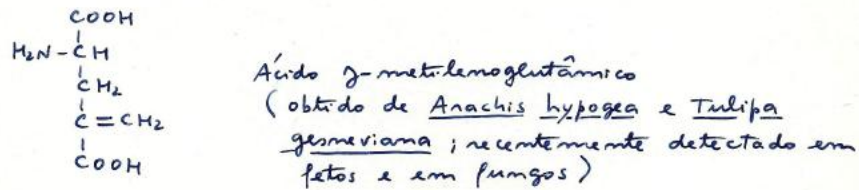 COOH
H₂N-CH
CH₂
C=CH₂
COOH
Ácido γ-metilenoglutâmico
(obtido de Arachis hypogea e Tulipa
gesneriana; recentemente detectado em
fetos e em fungos)